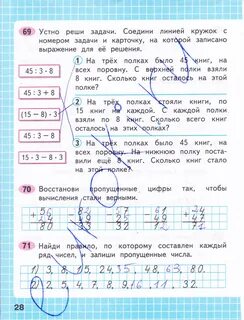 69 Устно реши задачи. Соедини линией кружок с
номером задачи и карточку, на которой записано
выражение для её решения.
45 : 3 - 8
45 : 3 + 8
(15 - 8) · 3
15 · 3 - 8 · 3
1 На трёх полках было 45 книг, на
всех поровну. С верхней полки взяли
8 книг. Сколько книг осталось на этой
полке?
2 На трёх полках стояли книги, по
15 книг на каждой. С каждой полки
взяли по 8 книг. Сколько всего книг
осталось на этих полках?
3 На трёх полках было 45 книг, на
всех поровну. На нижнюю полку поставили
ещё 8 книг. Сколько книг стало
на этой полке?
70 Восстанови пропущенные цифры так, чтобы
вычисления стали верными.
80 33 32 12 71
71 Найди правило, по которому составлен каждый
ряд чисел, и запиши пропущенные числа.
1) 3, 8, 15, 24, 35, 48, 63, 80.
2) 2, 5, 4, 7, 8, 9, 16, 11, 32.
28